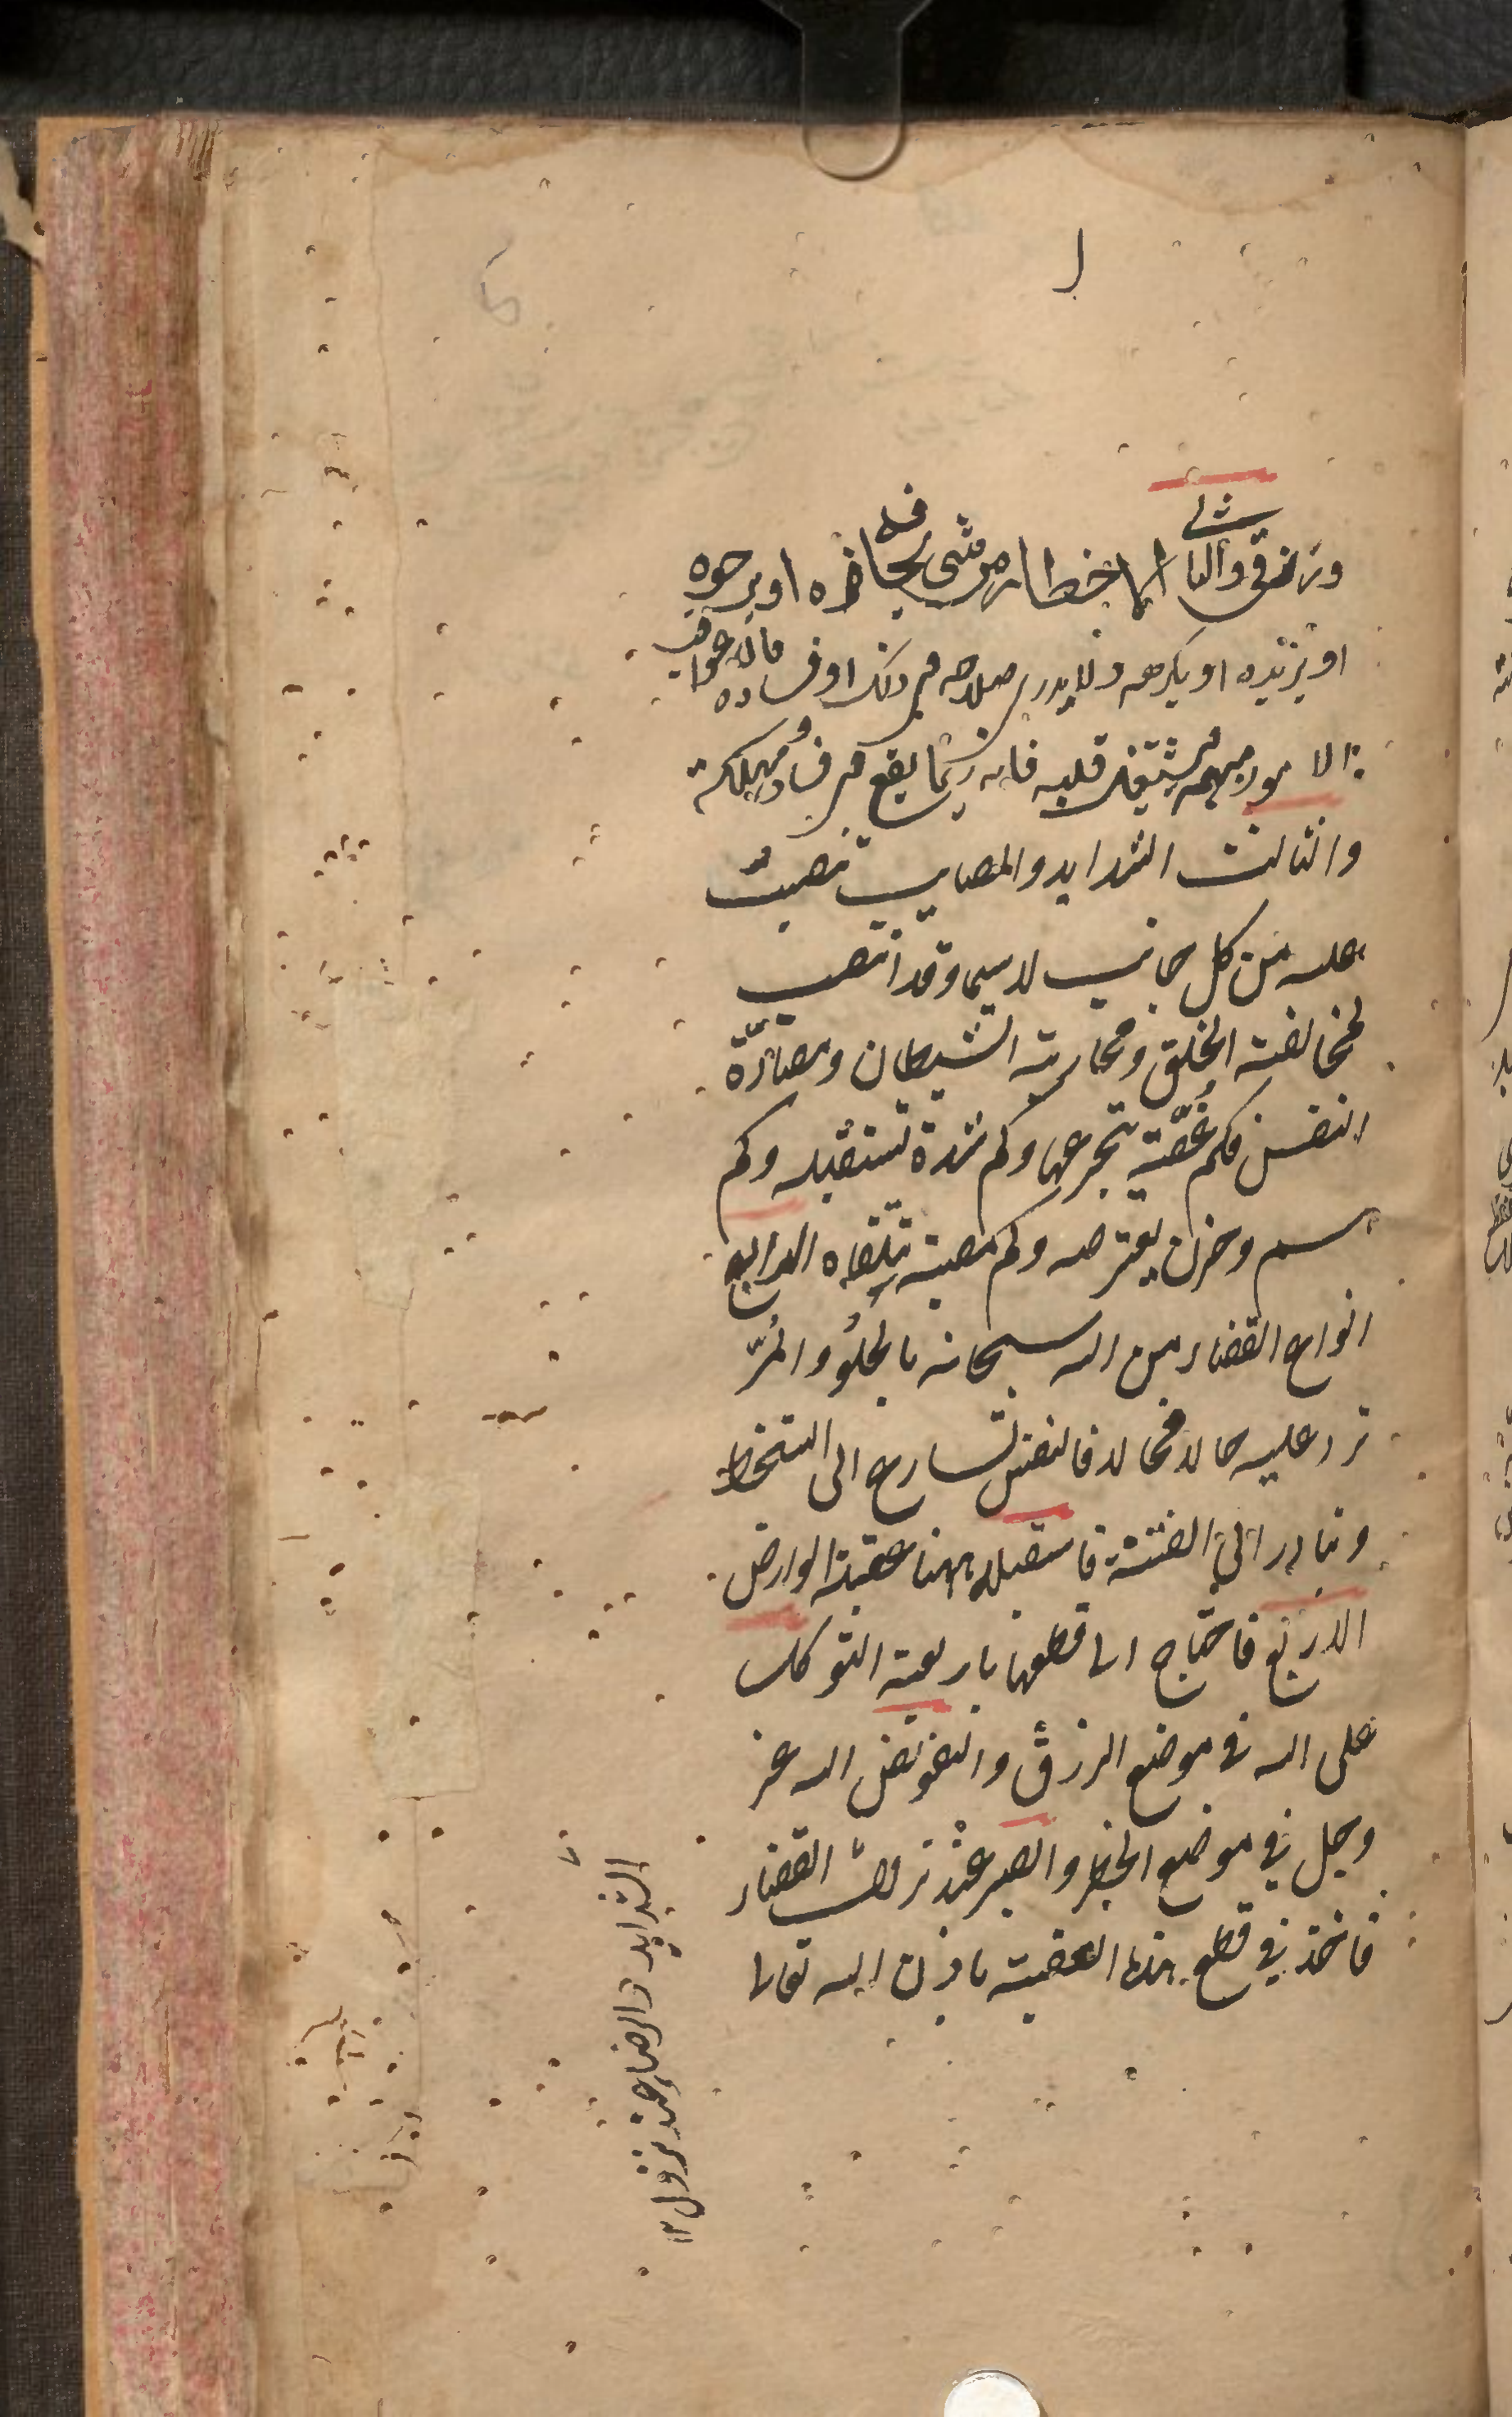 ورزقی والثانی الاخطار من شی یخافه او یرجوه
او یریده او یکرهه ولا یدری صلاحه فی ذلک او فساده فان عواقب
الامور مبهمة فیشتغل قلبه فانه ربما یقع فی فساد و مهلکة
والثالث الشداید والمصایب تنصبّ
علیه من کل جانب لاسیما وقد انتصب
لمخالفة الخلق ومحاربة الشیطان ومضادّة
النفس فکم غُصّة یتجرعها وکم شدة تستقبله وکم
هم وحزن یعترضه وکم مصیبة تتلقاه الرابع
انواع القضاء من الله سبحانه بالحلو والمُرّ
ترد علیه حالا فحالا فالنفس تسارع الی السخط
وتبادر الی الفتنة فاستقبله ههنا عقبة العوارض
الاربع فاحتاج الی قطعها باربعة التوکل
علی الله فی موضع الرزق والتفویض الله عز
وجل فی موضع الخطر والصبر عند نزول القضاء
فاخذ فی قطع هذه العقبة باذن الله تعالی
الشداید والرضاء عند نزول ۱۲